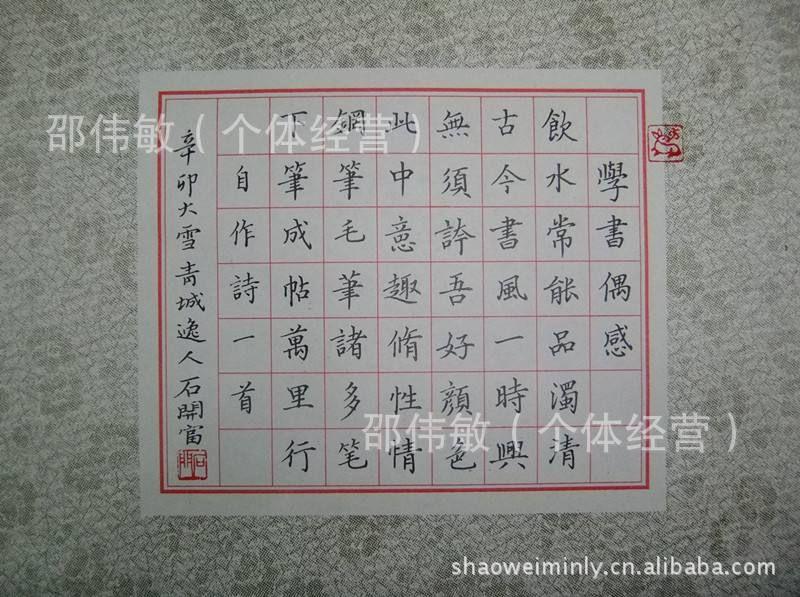 學書偶感
飲水常能品濁清
古今書風一時興
無須誇吾好顔色
此中意趣脩性情
鋼筆毛筆諸多笔
下筆成帖萬里行
自作詩一首
辛卯大雪青城逸人石開富
邵伟敏（个体经营）
邵伟敏（个体经营）
shaoweiminly.cn.alibaba.com